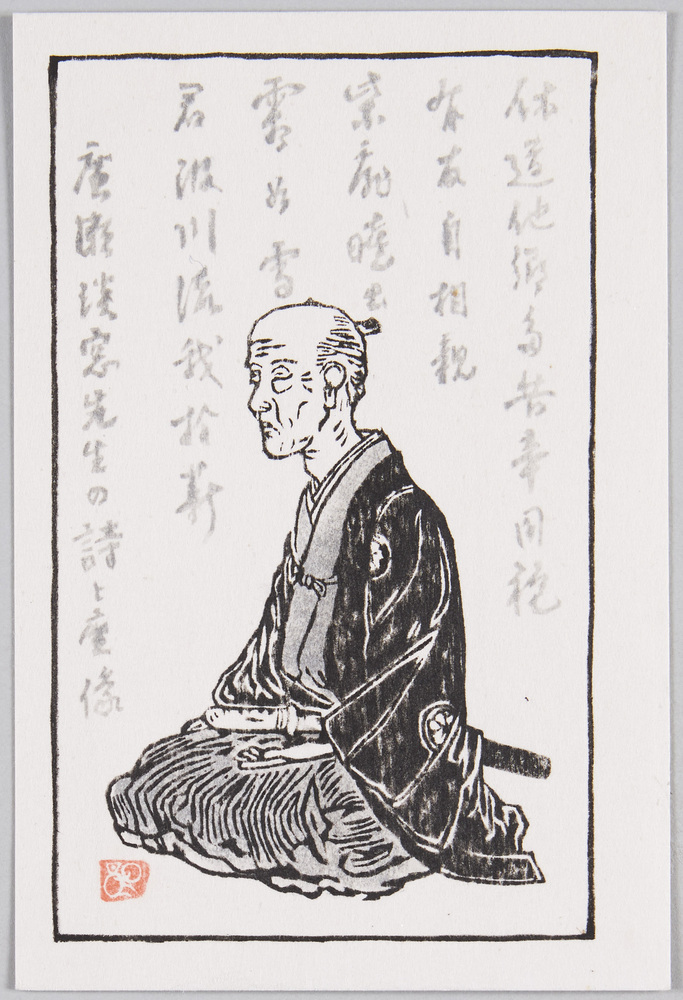 休道他郷多苦辛同袍
有友自相親
柴扉曉出
霜如雪
君汲川流我拾薪
廣瀬淡窓先生の詩と座像